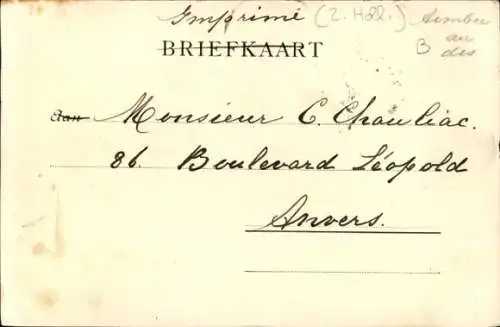 Imprimé (Z. Holl.)
B au
des
BRIEFKAART
Aan Monsieur C. Chauliac.
86. Boulevard Léopold
Anvers.